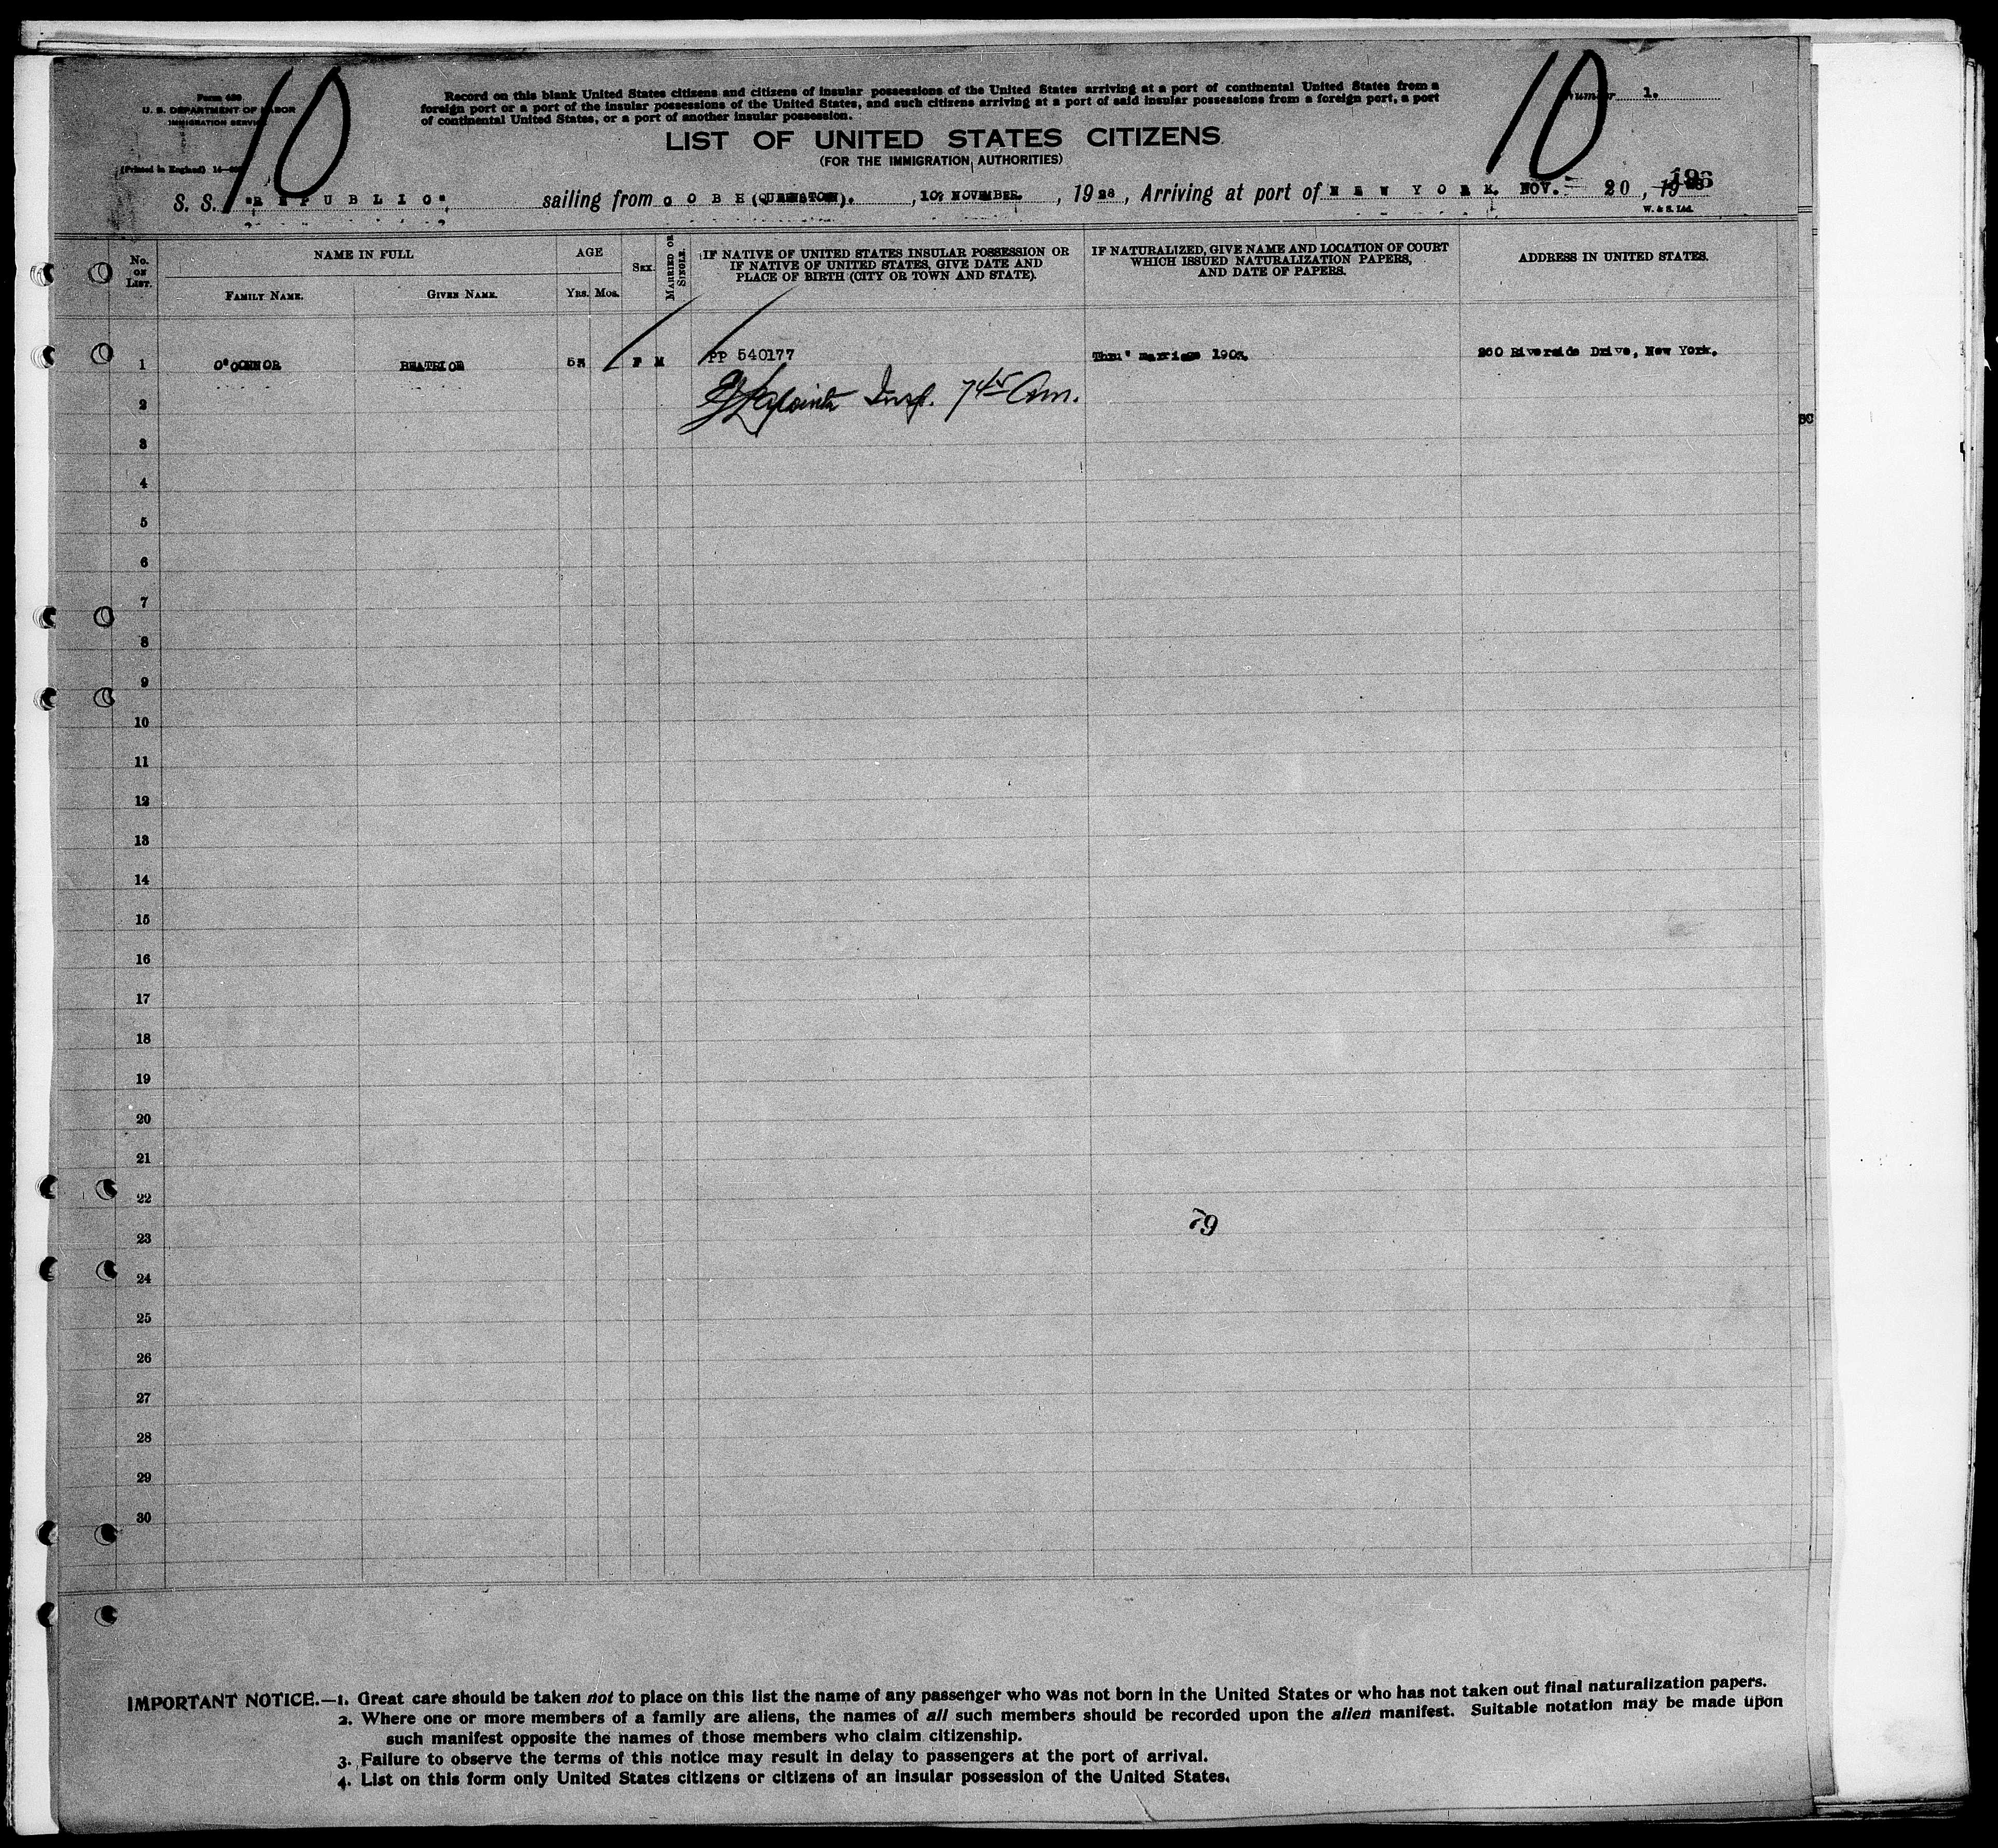 10
10
Form 630
U. S. DEPARTMENT OF LABOR
IMMIGRATION SERVICE
(Printed in England) 14—
Record on this blank United States citizens and citizens of insular possessions of the United States arriving at a port of continental United States from a
foreign port or a port of the insular possessions of the United States, and such citizens arriving at a port of said insular possessions from a foreign port, a port
of continental United States, or a port of another insular possession.
Number 1.
LIST OF UNITED STATES CITIZENS
(FOR THE IMMIGRATION AUTHORITIES)
S. S. "REPUBLIC", sailing from COBH (QUEENSTOWN). , 10, NOVEMBER. , 1928, Arriving at port of NEW YORK. NOV. 20, 19
W. & S. Ltd.
No. ON LIST. NAME IN FULL AGE SEX. MARRIED OR SINGLE. IF NATIVE OF UNITED STATES INSULAR POSSESSION OR IF NATIVE OF UNITED STATES, GIVE DATE AND PLACE OF BIRTH (CITY OR TOWN AND STATE). IF NATURALIZED, GIVE NAME AND LOCATION OF COURT WHICH ISSUED NATURALIZATION PAPERS, AND DATE OF PAPERS. ADDRESS IN UNITED STATES.
FAMILY NAME. GIVEN NAME. YRS. MOS.
1 O'CONNOR BEATRICE F M PP 540177 Thru' marriage 260 Riverside Drive, New York.
2 Insp. 7 45 Am.
3
4
5
6
7
8
9
10
11
12
13
14
15
16
17
18
19
20
21
22
79
23
24
25
26
27
28
29
30
IMPORTANT NOTICE.—1. Great care should be taken not to place on this list the name of any passenger who was not born in the United States or who has not taken out final naturalization papers.
2. Where one or more members of a family are aliens, the names of all such members should be recorded upon the alien manifest. Suitable notation may be made upon
such manifest opposite the names of those members who claim citizenship.
3. Failure to observe the terms of this notice may result in delay to passengers at the port of arrival.
4. List on this form only United States citizens or citizens of an insular possession of the United States.